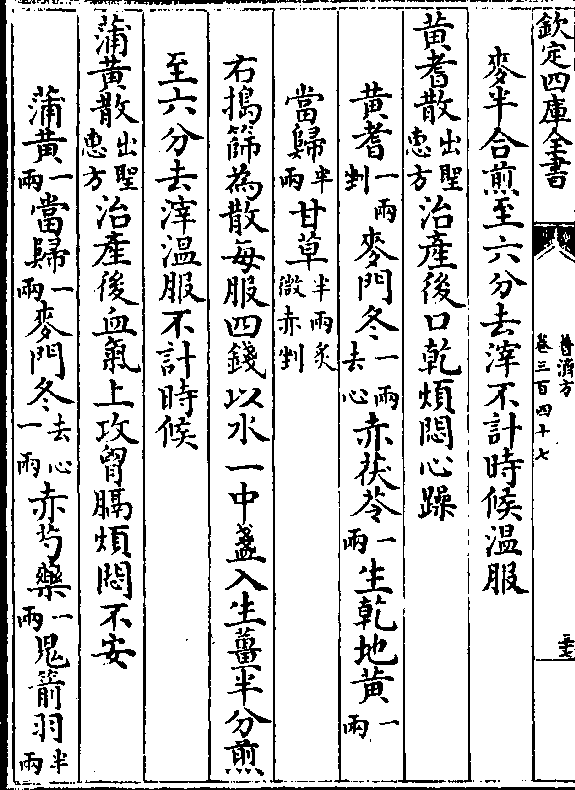 欽定四庫全書
普濟方
卷三百四十七
三十七
麥半合煎至六分去滓不計時候温服
黄耆散出聖惠方治産後口乾煩悶心躁
黄耆一兩剉麥門冬一兩去心赤茯苓一兩生乾地黄一兩
當歸半兩甘草半兩炙微赤剉
右搗篩為散每服四錢以水一中盞入生薑半分煎
至六分去滓温服不計時候
蒲黄散出聖惠方治産後血氣上攻胷膈煩悶不安
蒲黄一兩當歸一兩麥門冬去心一兩赤芍藥一兩鬼箭羽半兩